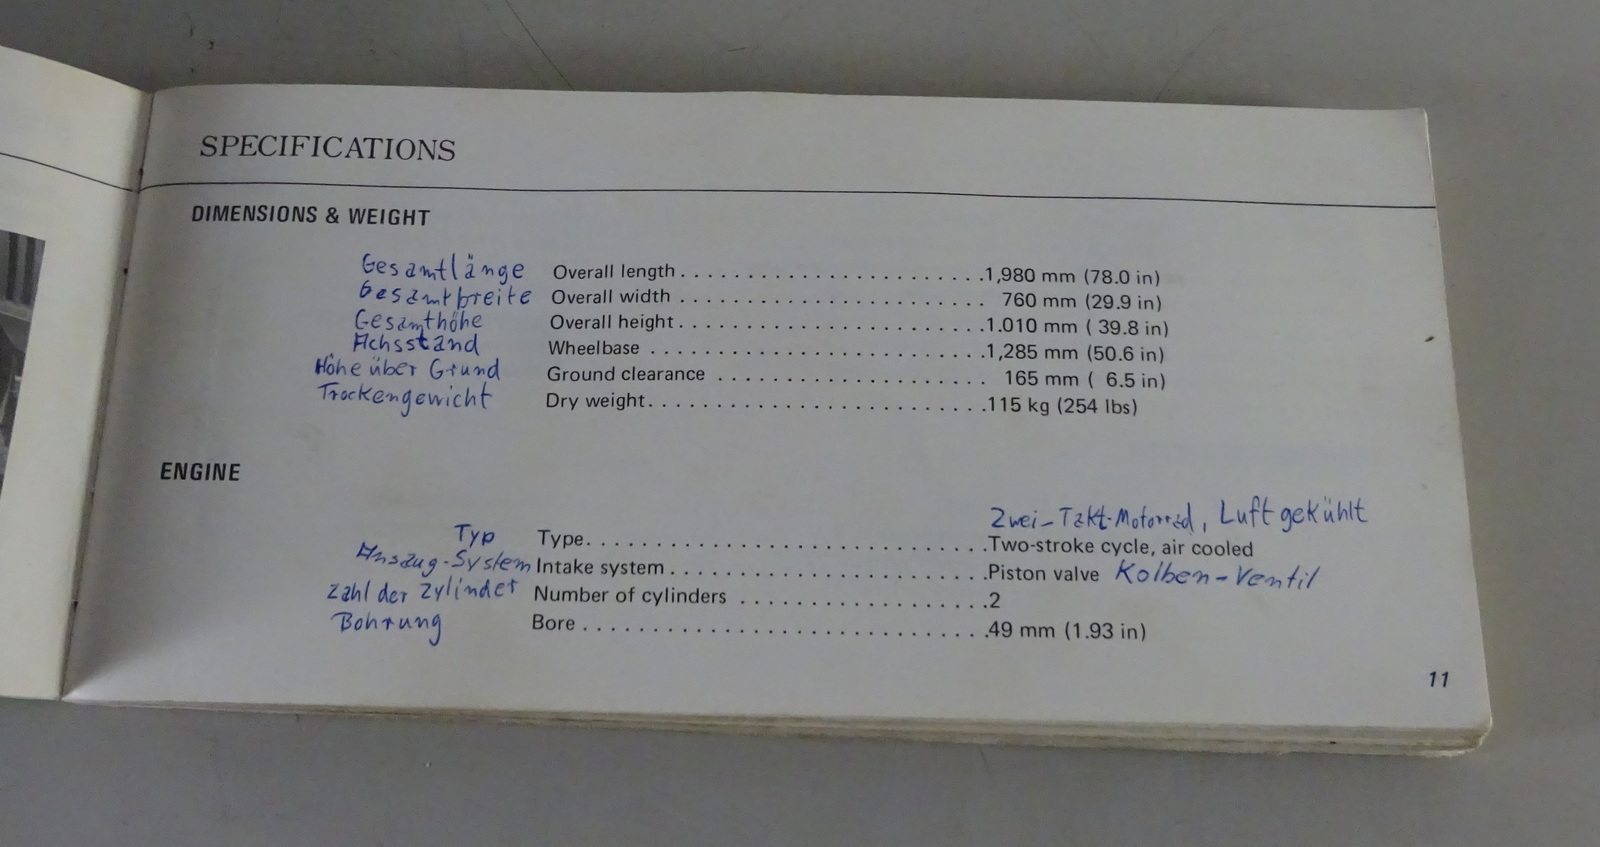 SPECIFICATIONS
DIMENSIONS & WEIGHT
Gesamtlänge Overall length . . . . . . . . . . . . . . . . . . . . . . . 1,980 mm (78.0 in)
Gesamtbreite Overall width . . . . . . . . . . . . . . . . . . . . . . . 760 mm (29.9 in)
Gesamthöhe Overall height . . . . . . . . . . . . . . . . . . . . . . . 1.010 mm ( 39.8 in)
Achsstand Wheelbase . . . . . . . . . . . . . . . . . . . . . . . . . 1,285 mm (50.6 in)
Höhe über Grund Ground clearance . . . . . . . . . . . . . . . . . . . . 165 mm ( 6.5 in)
Trockengewicht Dry weight . . . . . . . . . . . . . . . . . . . . . . . . . 115 kg (254 lbs)
ENGINE
Zwei-Takt-Motorrad, Luftgekühlt
Typ Type . . . . . . . . . . . . . . . . . . . . . . . . . . . . . Two-stroke cycle, air cooled
Ansaug-System Intake system . . . . . . . . . . . . . . . . . . . . . . . Piston valve Kolben-Ventil
Zahl der Zylinder Number of cylinders . . . . . . . . . . . . . . . . . . . 2
Bohrung Bore . . . . . . . . . . . . . . . . . . . . . . . . . . . . . . 49 mm (1.93 in)
11